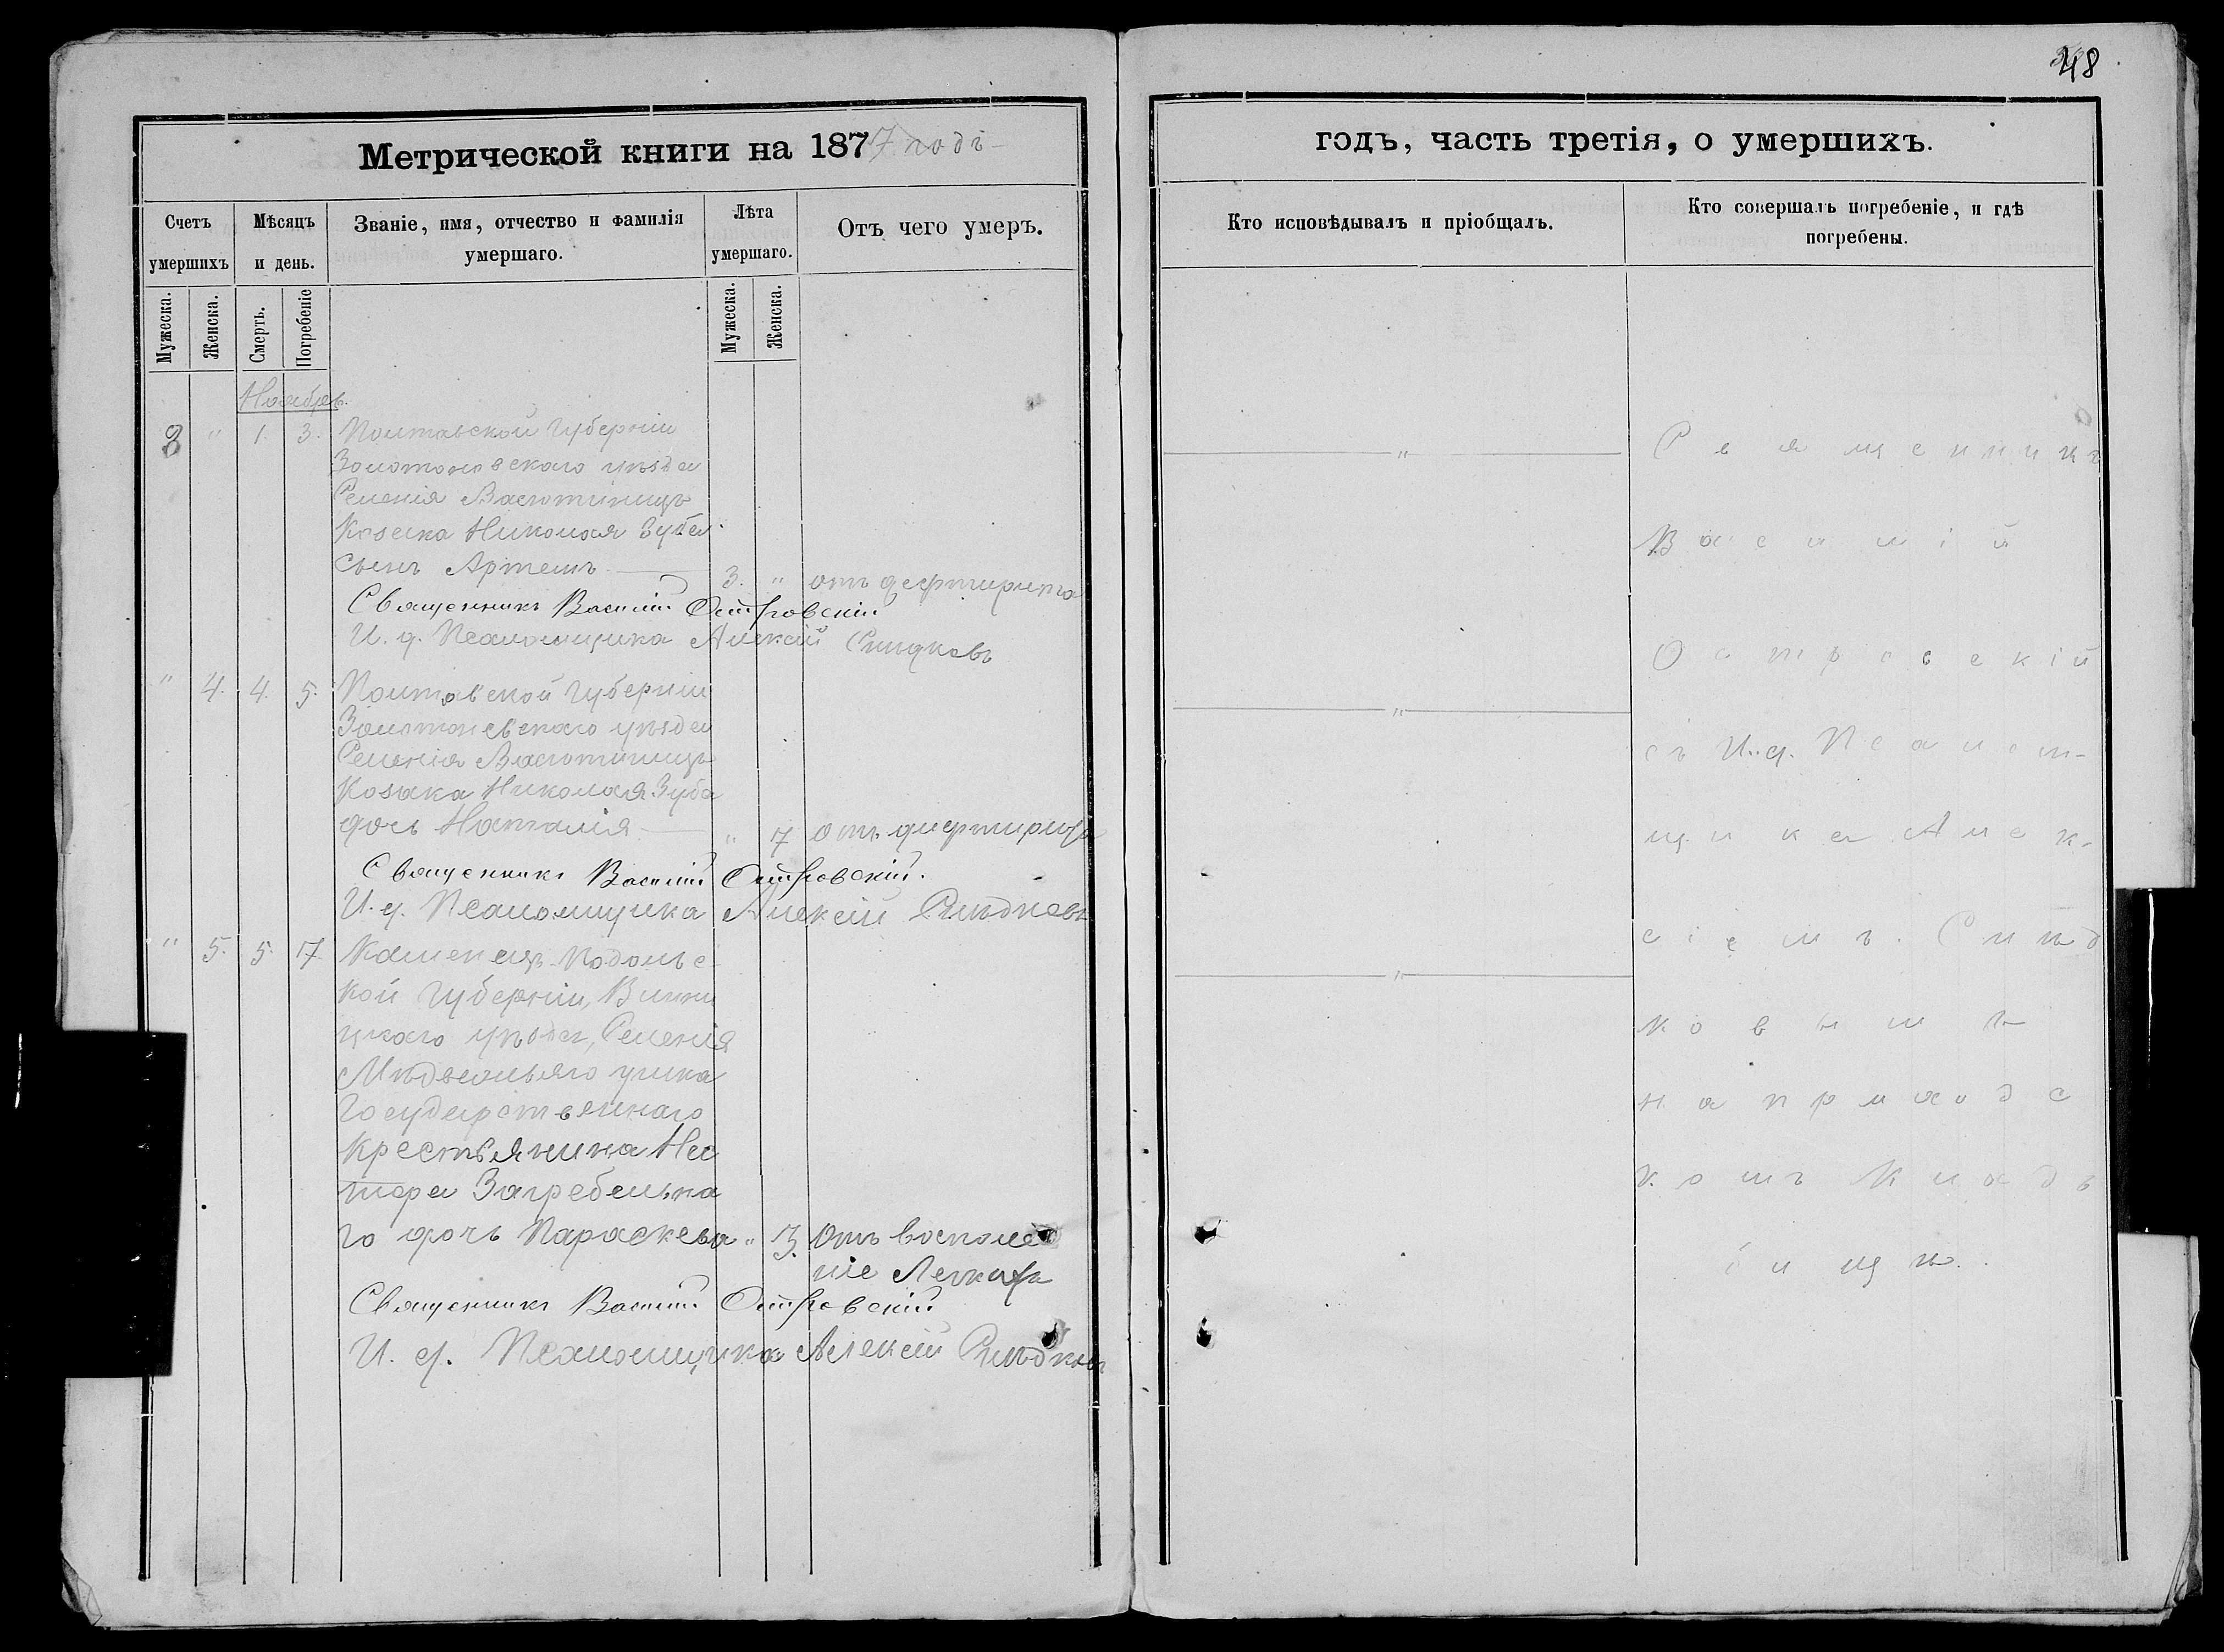 48
Метрической книги на 1877 годъ
Счетъ умершихъ
Мѣсяцъ и день.
Званіе, имя, отчество и фамилія умершаго.
Лѣта умершаго.
Отъ чего умеръ.
Мужеска.
Женска.
Смерть.
Погребеніе
Мужеска.
Женска.
Ноябрь.
8 " 1. 3. Полтавской Губерніи
Золотоновскаго уѣзда
Селенія Васютинецъ
Козака Николая Зуба
сынъ Артемъ 3. " отъ дефтирита
Священникъ Василій Островскій
И. д. Псаломщика Алексій Слѣдковъ
" 4. 4. 5. Полтавской Губерніи
Золотоновскаго уѣзда
Селенія Васютинецъ
Козака Николая Зуба
дочь Наталія " 7 отъ
Священникъ Василій Островскій.
И. д. Псаломщика Алексій Слѣдковъ
" 5. 5. 7 Каменецъ-Подольс-
кой Губерніи, Винни
цкаго уѣзда, Селенія
Государственнаго
Крестьянина Нес
тора Загребельна
го дочь Параскева " 3. Отъ воспале
ніе Легкихъ
Священникъ Василій Островскій
И. д. Псаломщика Алексій Слѣдковъ
годъ, часть третія, о умершихъ.
Кто исповѣдывалъ и пріобщалъ.
Кто совершалъ погребеніе, и гдѣ
погребены.
" Священникъ
Василій
Островскій
"
съ И. д. Псалом-
щика Алек-
сіемъ Слѣд
"
ковымъ
на приходс
комъ Клад
бищѣ.